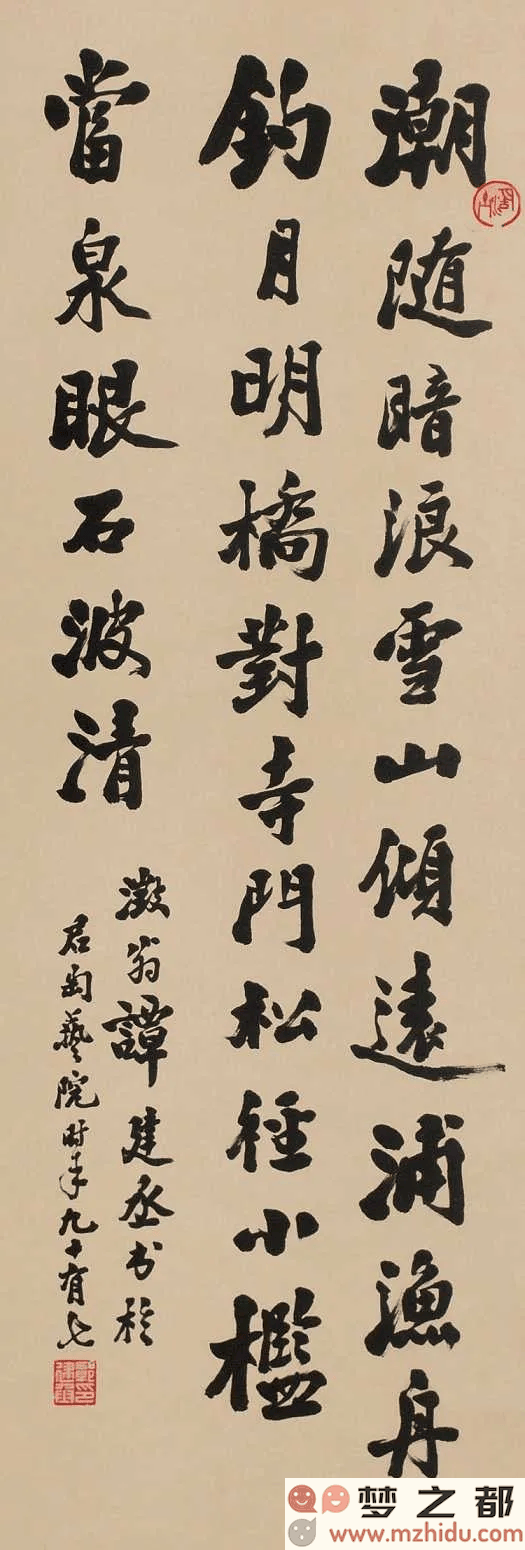 潮随暗浪雪山傾遠浦漁舟
釣月明橋對寺門松徑小檻
當泉眼石波清
澂翁譚建丞书於
君匋藝院时年九十有七
梦之都
www.mzhidu.com